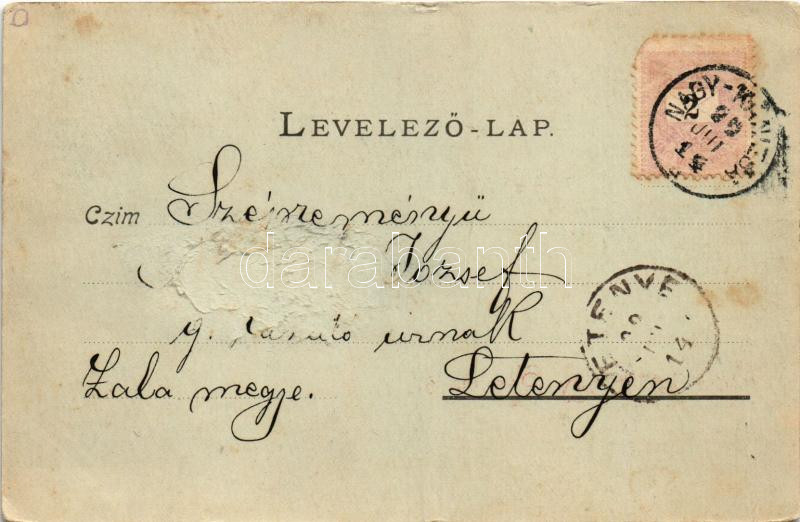 LEVELEZŐ-LAP.
NAGY-KANIZSA
Czim Széireményü
József
g. urnak
Zala megye. Letenyen
LETENYE
14
darabanth